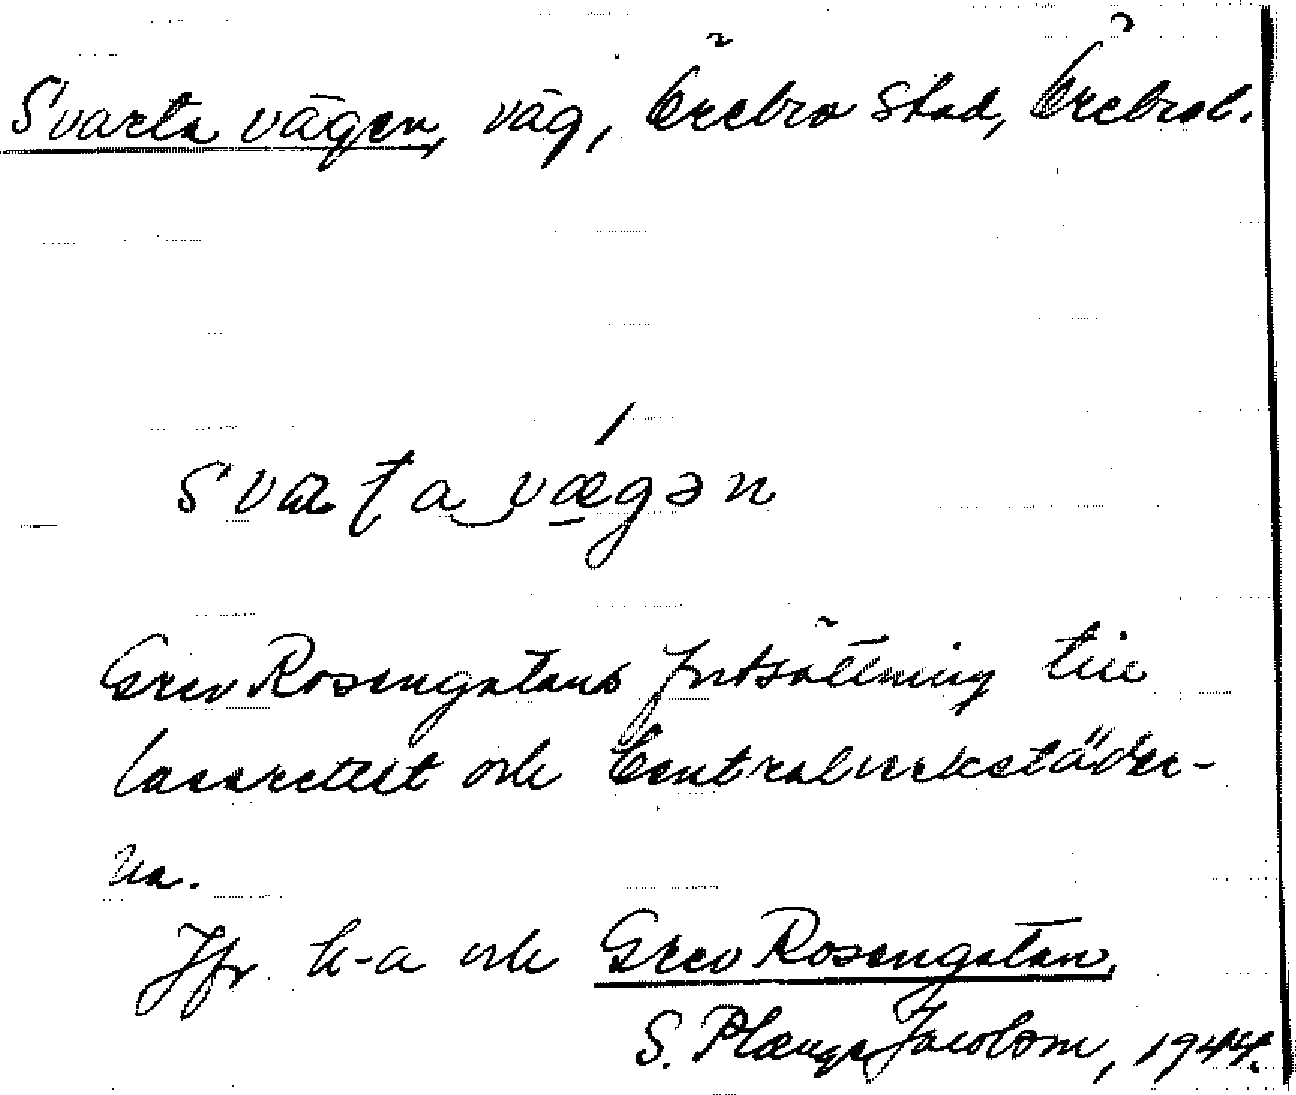 Svarta vägen, väg, Örebro stad, Örebrol.
svaʈa vægən
Grev Rosengatans fortsättning till
lasarettet och Centralverkstäder-
na.
Jfr k-a och Grev Rosengatan.
S. Plænge Jacobson, 1944.